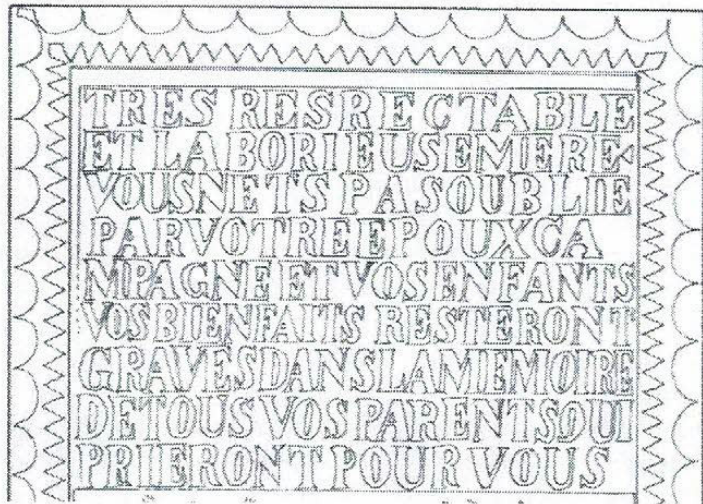 TRES RESRECTABLE
ET LABORIEUSE MERE
VOUS NETS PAS OUBLIE
PAR VOTRE EPOUX CA
MPAGNE ET VOS ENFANTS
VOS BIENFAITS RESTERONT
GRAVES DANS LA MEMOIRE
DE TOUS VOS PARENTS OUI
PRIERONT POUR VOUS